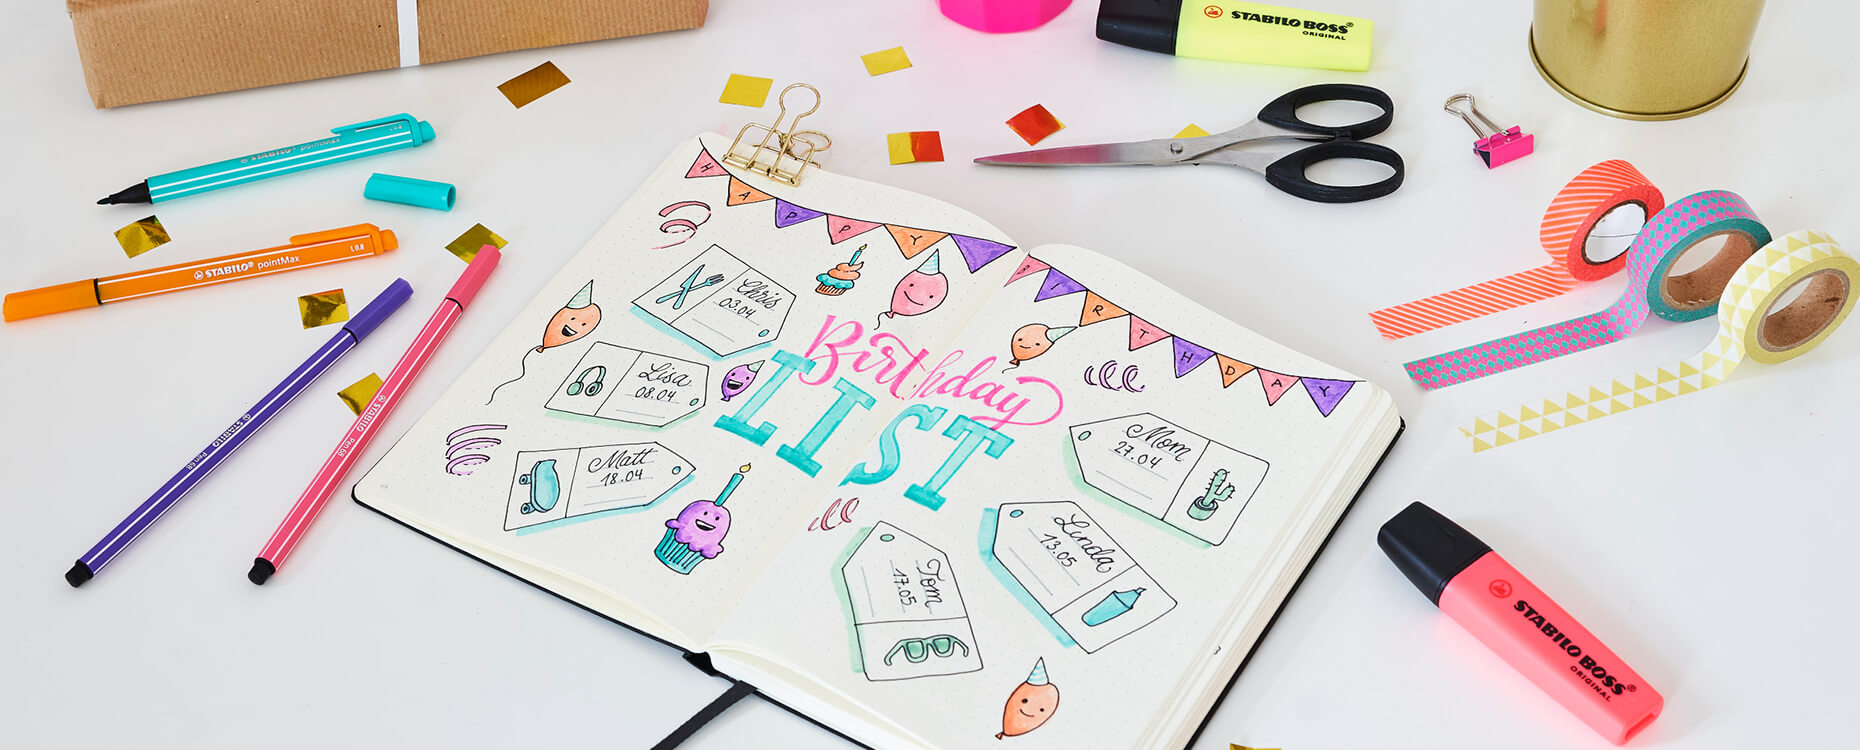 STABILO BOSS®
ORIGINAL
STABILO® pointMax
STABILO® pointMax L 0.8
STABILO Pen 68
STABILO Pen 68
HAPPY
BIRTHDAY
Birthday
LIST
Chris
03.04
Lisa
08.04
Matt
18.04
Mom
27.04
Linda
13.05
Tom
17.05
STABILO BOSS®
ORIGINAL